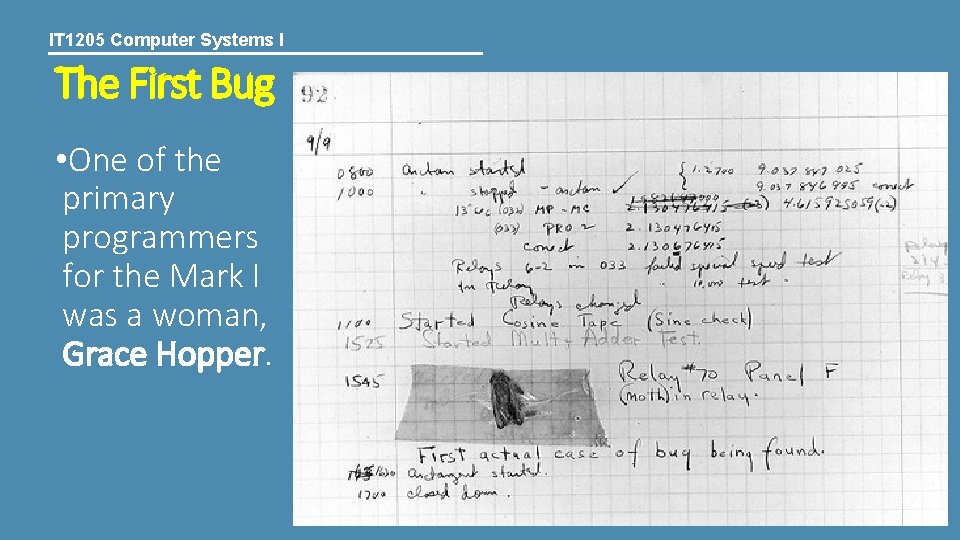 IT 1205 Computer Systems I
The First Bug
•One of the
primary
programmers
for the Mark I
was a woman,
Grace Hopper.
92
9/9
0800 antan started
1000 " stopped - antan ✓ { 1.2700 9.037 847 025
9.037 846 995 correct
13"uc (032) MP-MC 2.130476415 (-3) 4.615925059(-2)
(033) PRO 2 2.130476415
correct 2.130676415
Relays 6-2 in 033 failed special speed test
in relay " 10,000 test.
Relays changed
1100 Started Cosine Tape (Sine check)
1525 Started Mult + Adder Test.
1545 Relay #70 Panel F
(moth) in relay.
First actual case of bug being found.
1630 antangent started.
1700 closed down.
Relay
Relay